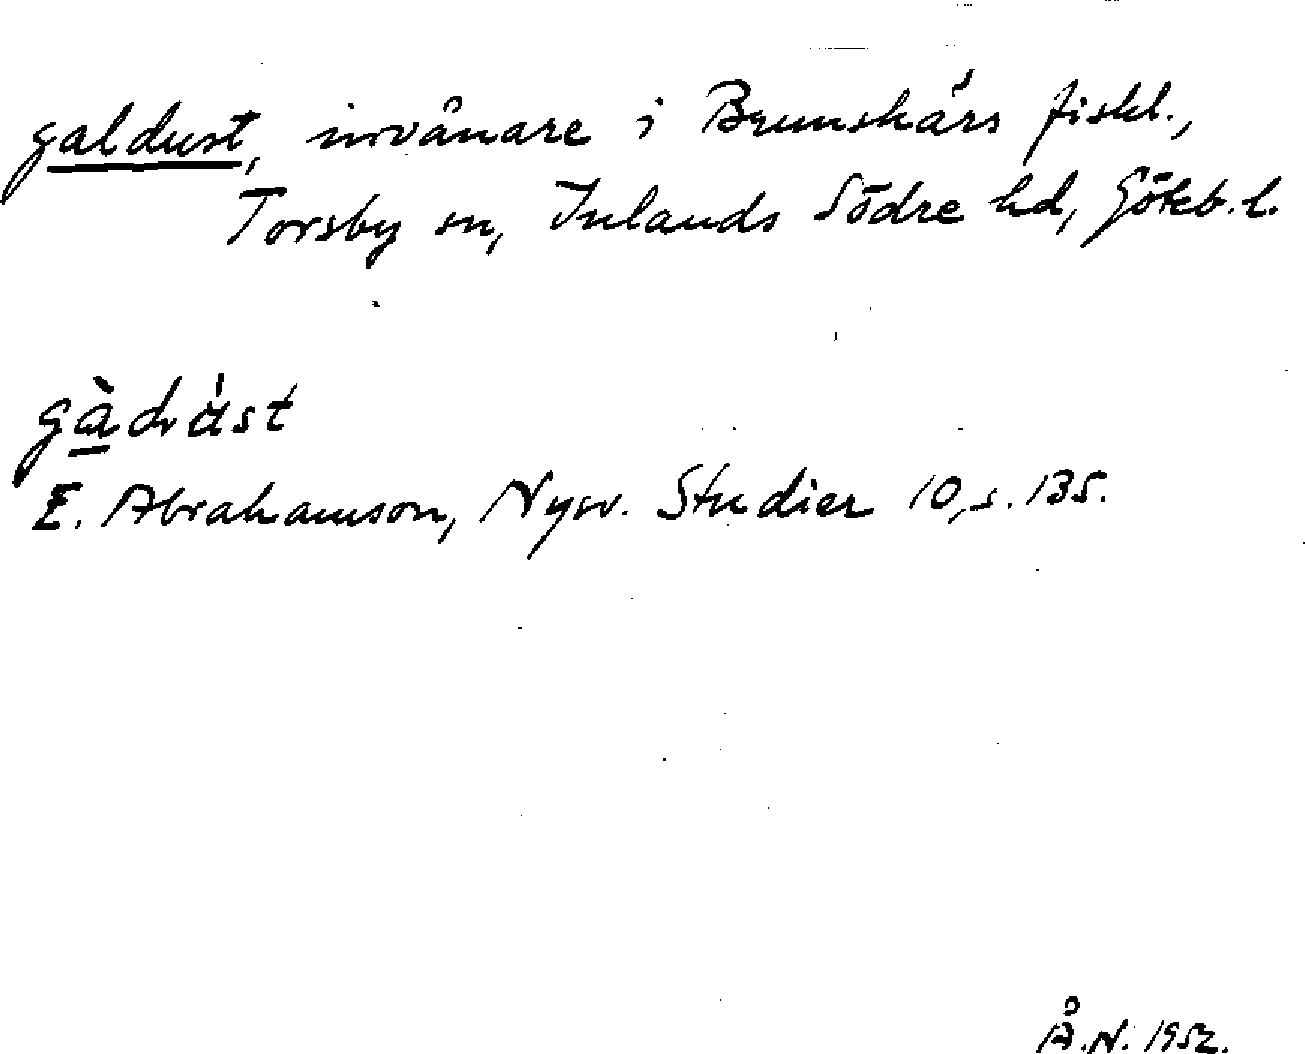 galdust, invånare i Brunskärs fiskl.,
Torsby sn, Inlands Södre hd, Göteb. l.
E. Abrahamson, Nysv. Studier 10, s. 135.
Å.N. 1952.